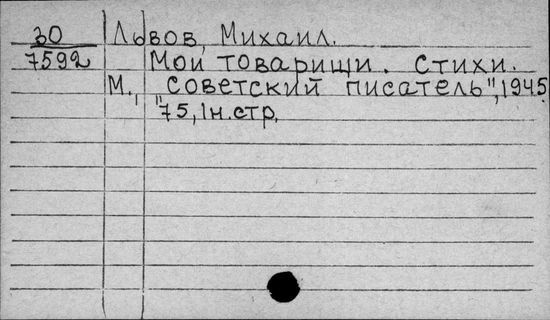 30 Львов, Михаил.
7592 Мои товарищи. Стихи.
М., "Советский писатель", 1945
75, 1н.стр.